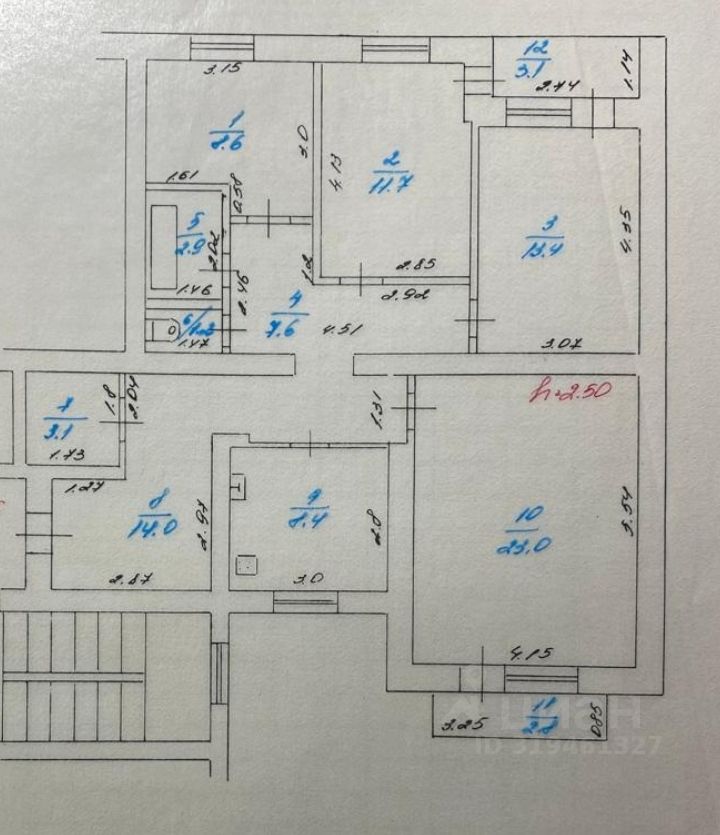 12
3.1
2.74
1.14
3.15
1
8.6
3.0
1.61
0.58
2
11.7
4.13
2.85
3
13.4
4.35
3.07
5
2.9
2.02
1.46
6/1.2
1.47
2.46
1.2
4
7.6
4.51
2.92
h=2.50
7
3.1
1.8
2.04
1.73
1.27
8
14.0
2.97
2.87
1.31
9
8.4
2.8
3.0
10
23.0
5.54
4.15
11
2.8
3.25
0.85
циан
ID 319461327